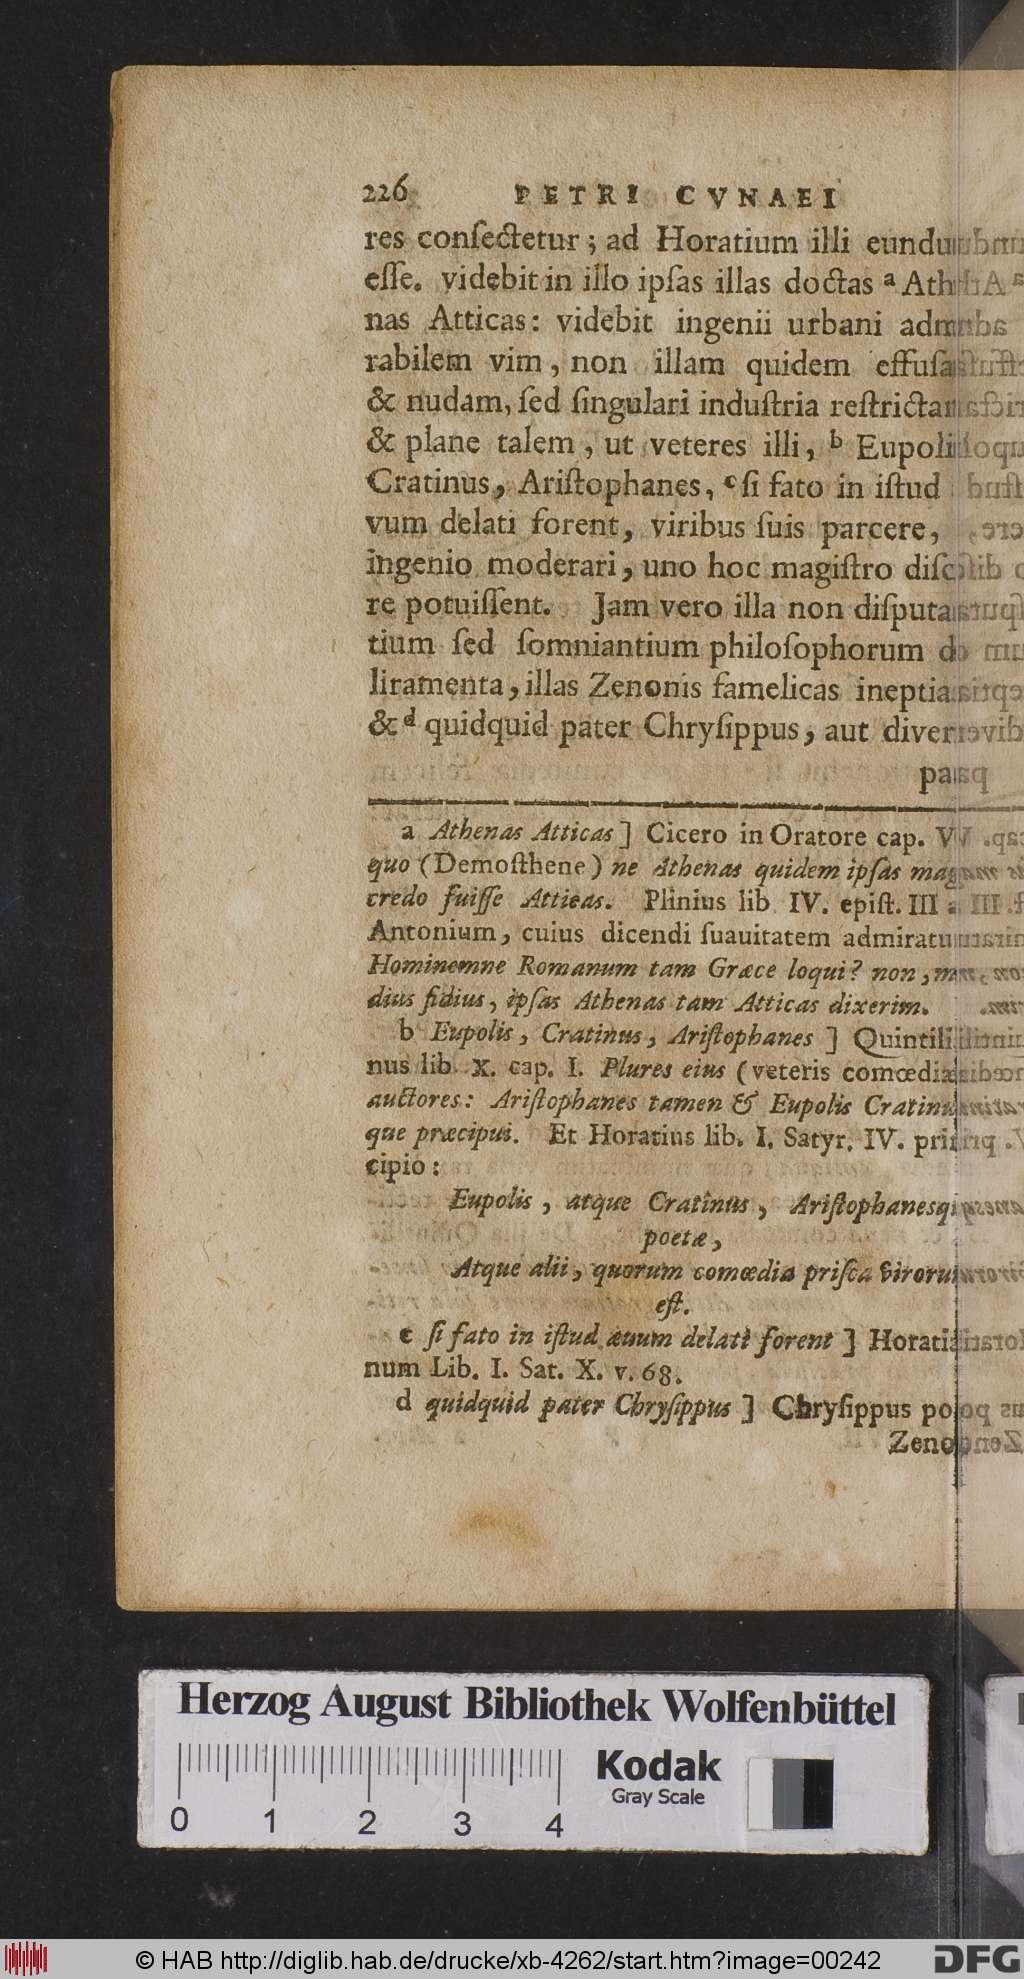 226 PETRI CVNAEI
res conſectetur; ad Horatium illi eundu
eſſe. videbit in illo ipſas illas doctas a Ath
nas Atticas: videbit ingenii urbani adm
rabilem vim, non illam quidem effuſa
& nudam, ſed ſingulari induſtria reſtricta
& plane talem, ut veteres illi, b Eupoli
Cratinus, Ariſtophanes, c ſi fato in iſtud
vum delati forent, viribus ſuis parcere,
ingenio moderari, uno hoc magiſtro diſc
re potuiſſent. Jam vero illa non diſputa
tium ſed ſomniantium philoſophorum d
liramenta, illas Zenonis famelicas ineptia
& d quidquid pater Chryſippus, aut diver
pa
a Athenas Atticas] Cicero in Oratore cap. V
quo (Demoſthene) ne Athenas quidem ipſas mag
credo fuiſſe Atticas. Plinius lib IV. epiſt. III
Antonium, cuius dicendi ſuauitatem admiratu
Hominemne Romanum tam Græce loqui? non, m
dius fidius, ipſas Athenas tam Atticas dixerim.
b Eupolis, Cratinus, Ariſtophanes] Quintili
nus lib. X. cap. I. Plures eius (veteris comœdiæ
auctores: Ariſtophanes tamen & Eupolis Cratinu
que præcipui. Et Horatius lib. I. Satyr. IV. pri
cipio:
Eupolis, atque Cratinus, Ariſtophanesq
poetæ,
Atque alii, quorum comœdia priſca viroru
eſt.
c ſi fato in iſtud æuum delati forent] Horati
num Lib. I. Sat. X. v. 68.
d quidquid pater Chryſippus] Chryſippus po
Zeno
Herzog August Bibliothek Wolfenbüttel
Kodak
Gray Scale
0 1 2 3 4
© HAB http://diglib.hab.de/drucke/xb-4262/start.htm?image=00242
DFG